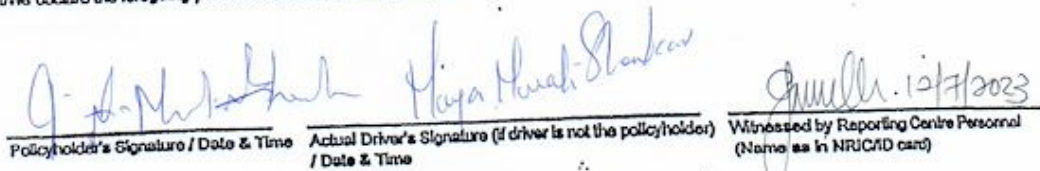 Maya Murali Shankar
12/7/2023
Policyholder's Signature / Date & Time
Actual Driver's Signature (if driver is not the policyholder)
/ Date & Time
Witnessed by Reporting Centre Personnel
(Name as in NRIC/ID card)